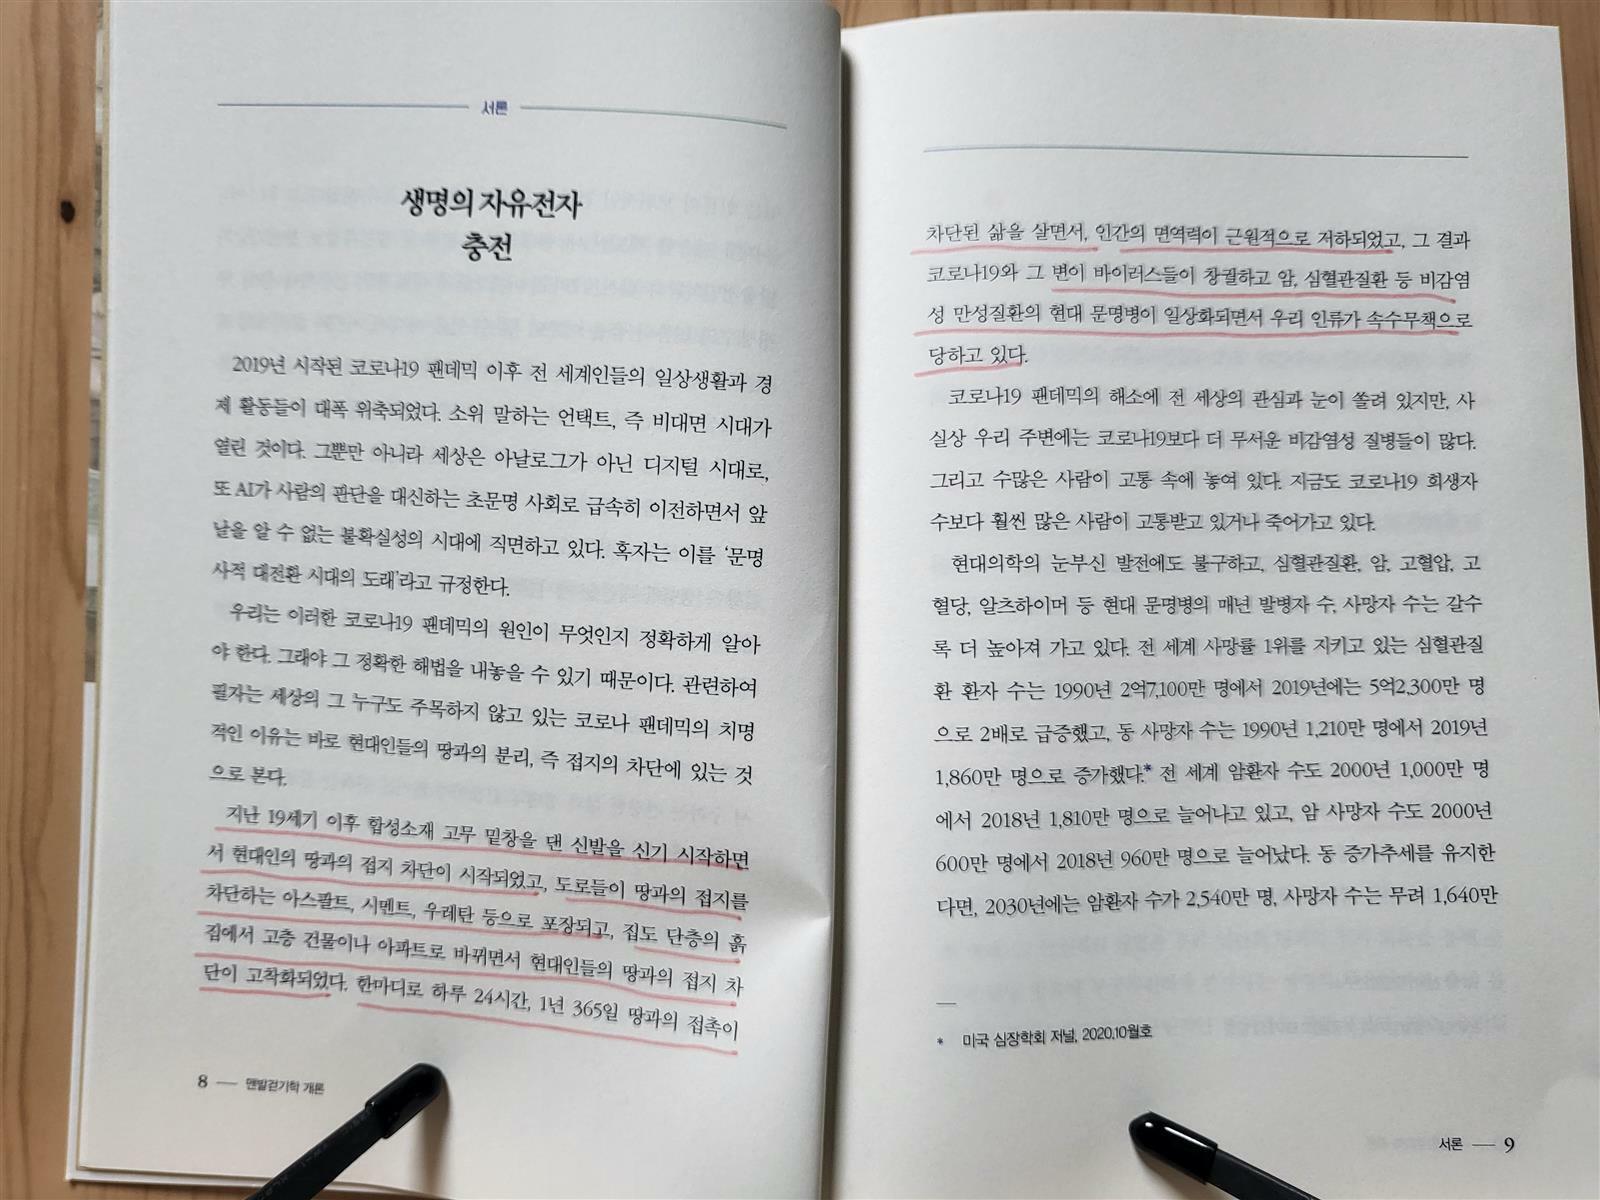 서론
생명의 자유전자
충전
2019년 시작된 코로나19 팬데믹 이후 전 세계인들의 일상생활과 경
제 활동들이 대폭 위축되었다. 소위 말하는 언택트, 즉 비대면 시대가
열린 것이다. 그뿐만 아니라 세상은 아날로그가 아닌 디지털 시대로,
또 AI가 사람의 판단을 대신하는 초문명 사회로 급속히 이전하면서 앞
날을 알 수 없는 불확실성의 시대에 직면하고 있다. 혹자는 이를 ‘문명
사적 대전환 시대의 도래’라고 규정한다.
우리는 이러한 코로나19 팬데믹의 원인이 무엇인지 정확하게 알아
야 한다. 그래야 그 정확한 해법을 내놓을 수 있기 때문이다. 관련하여
필자는 세상의 그 누구도 주목하지 않고 있는 코로나 팬데믹의 치명
적인 이유는 바로 현대인들의 땅과의 분리, 즉 접지의 차단에 있는 것
으로 본다.
지난 19세기 이후 합성소재 고무 밑창을 댄 신발을 신기 시작하면
서 현대인의 땅과의 접지 차단이 시작되었고, 도로들이 땅과의 접지를
차단하는 아스팔트, 시멘트, 우레탄 등으로 포장되고, 집도 단층의 흙
집에서 고층 건물이나 아파트로 바뀌면서 현대인들의 땅과의 접지 차
단이 고착화되었다. 한마디로 하루 24시간, 1년 365일 땅과의 접촉이
8 — 맨발걷기학 개론
차단된 삶을 살면서, 인간의 면역력이 근원적으로 저하되었고, 그 결과
코로나19와 그 변이 바이러스들이 창궐하고 암, 심혈관질환 등 비감염
성 만성질환의 현대 문명병이 일상화되면서 우리 인류가 속수무책으로
당하고 있다.
코로나19 팬데믹의 해소에 전 세상의 관심과 눈이 쏠려 있지만, 사
실상 우리 주변에는 코로나19보다 더 무서운 비감염성 질병들이 많다.
그리고 수많은 사람이 고통 속에 놓여 있다. 지금도 코로나19 희생자
수보다 훨씬 많은 사람이 고통받고 있거나 죽어가고 있다.
현대의학의 눈부신 발전에도 불구하고, 심혈관질환, 암, 고혈압, 고
혈당, 알츠하이머 등 현대 문명병의 매년 발병자 수, 사망자 수는 갈수
록 더 높아져 가고 있다. 전 세계 사망률 1위를 지키고 있는 심혈관질
환 환자 수는 1990년 2억7,100만 명에서 2019년에는 5억2,300만 명
으로 2배로 급증했고, 동 사망자 수는 1990년 1,210만 명에서 2019년
1,860만 명으로 증가했다.* 전 세계 암환자 수도 2000년 1,000만 명
에서 2018년 1,810만 명으로 늘어나고 있고, 암 사망자 수도 2000년
600만 명에서 2018년 960만 명으로 늘어났다. 동 증가추세를 유지한
다면, 2030년에는 암환자 수가 2,540만 명, 사망자 수는 무려 1,640만
* 미국 심장학회 저널, 2020.10월호
서론 — 9